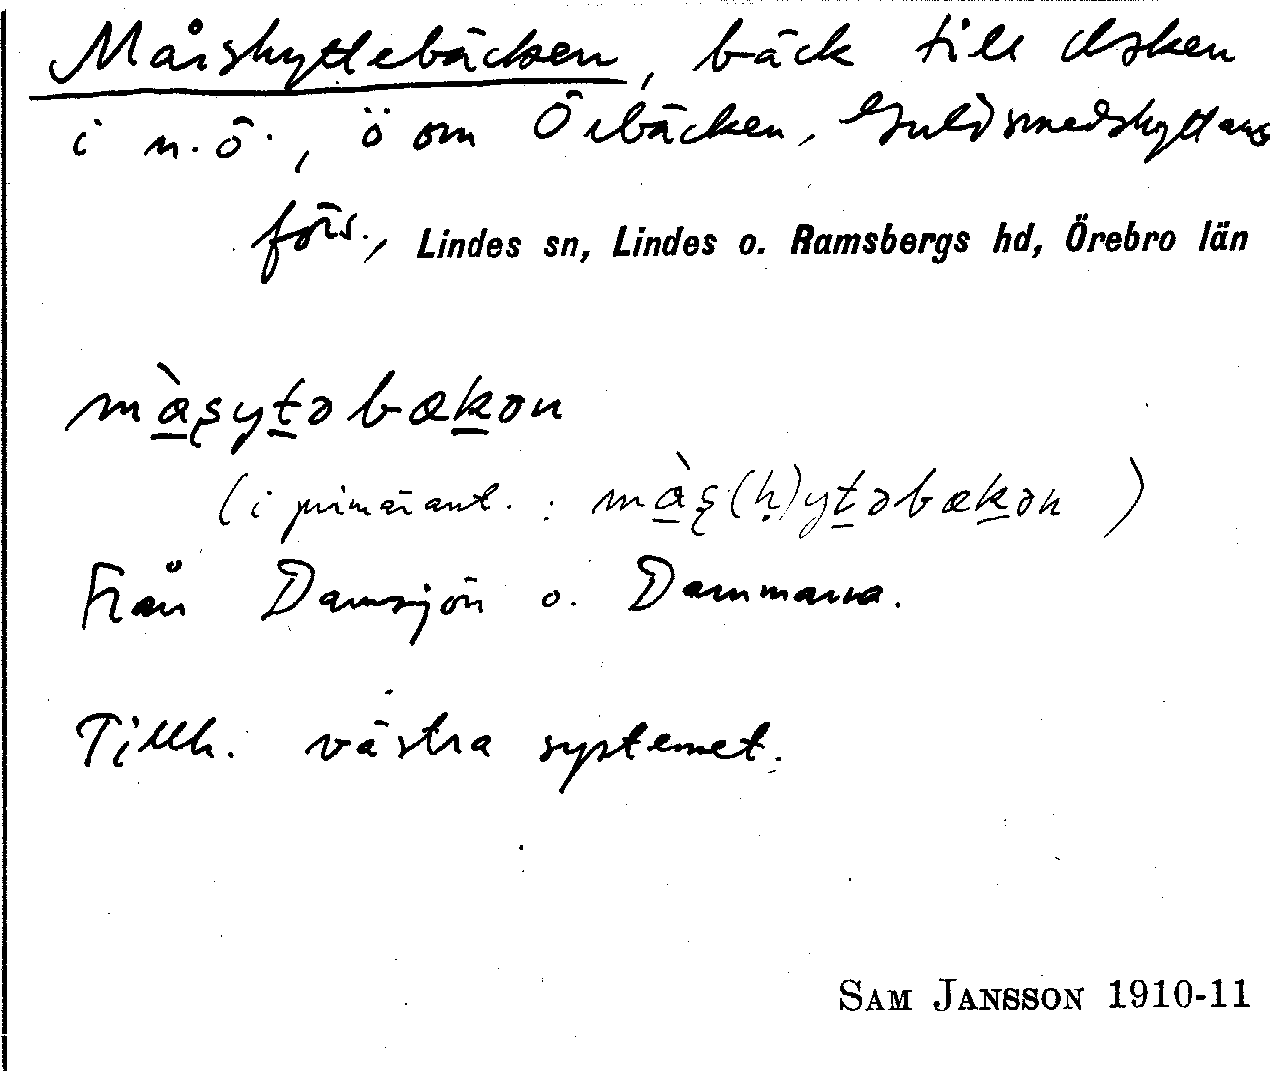 Mårshyttebäcken, bäck till Usken
i n.ö., ö om Örbäcken, Guldsmedshyttans
förs., Lindes sn, Lindes o. Ramsbergs hd, Örebro län
màşyt̲əbæk̲ən
(i primärant.: màş(ḥ)yt̲əbæk̲ən)
Från Damsjön o. Dammarna.
Tillh. västra systemet.
SAM JANSSON 1910-11